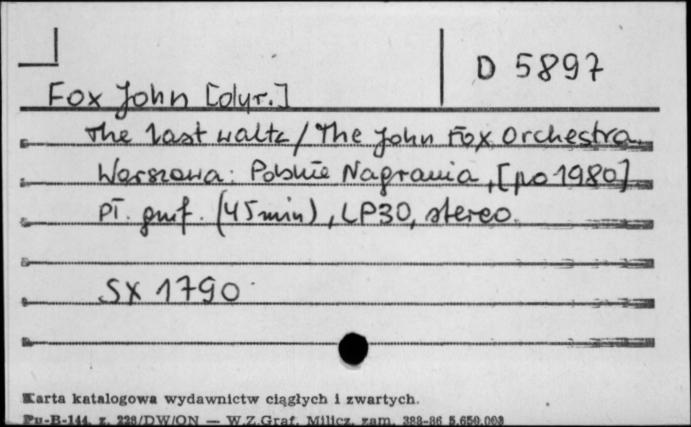 D 5897
Fox John [dyr.]
The last waltz / The John Fox Orchestra.
Warszawa: Polskie Nagrania, [po 1980]
Pł. gmf. (45 min), LP30, stereo.
SX 1790
Karta katalogowa wydawnictw ciągłych i zwartych.
Pu-B-144, z. 228/DW/ON — W.Z.Graf. Milicz, zam. 388-86 5.650.003